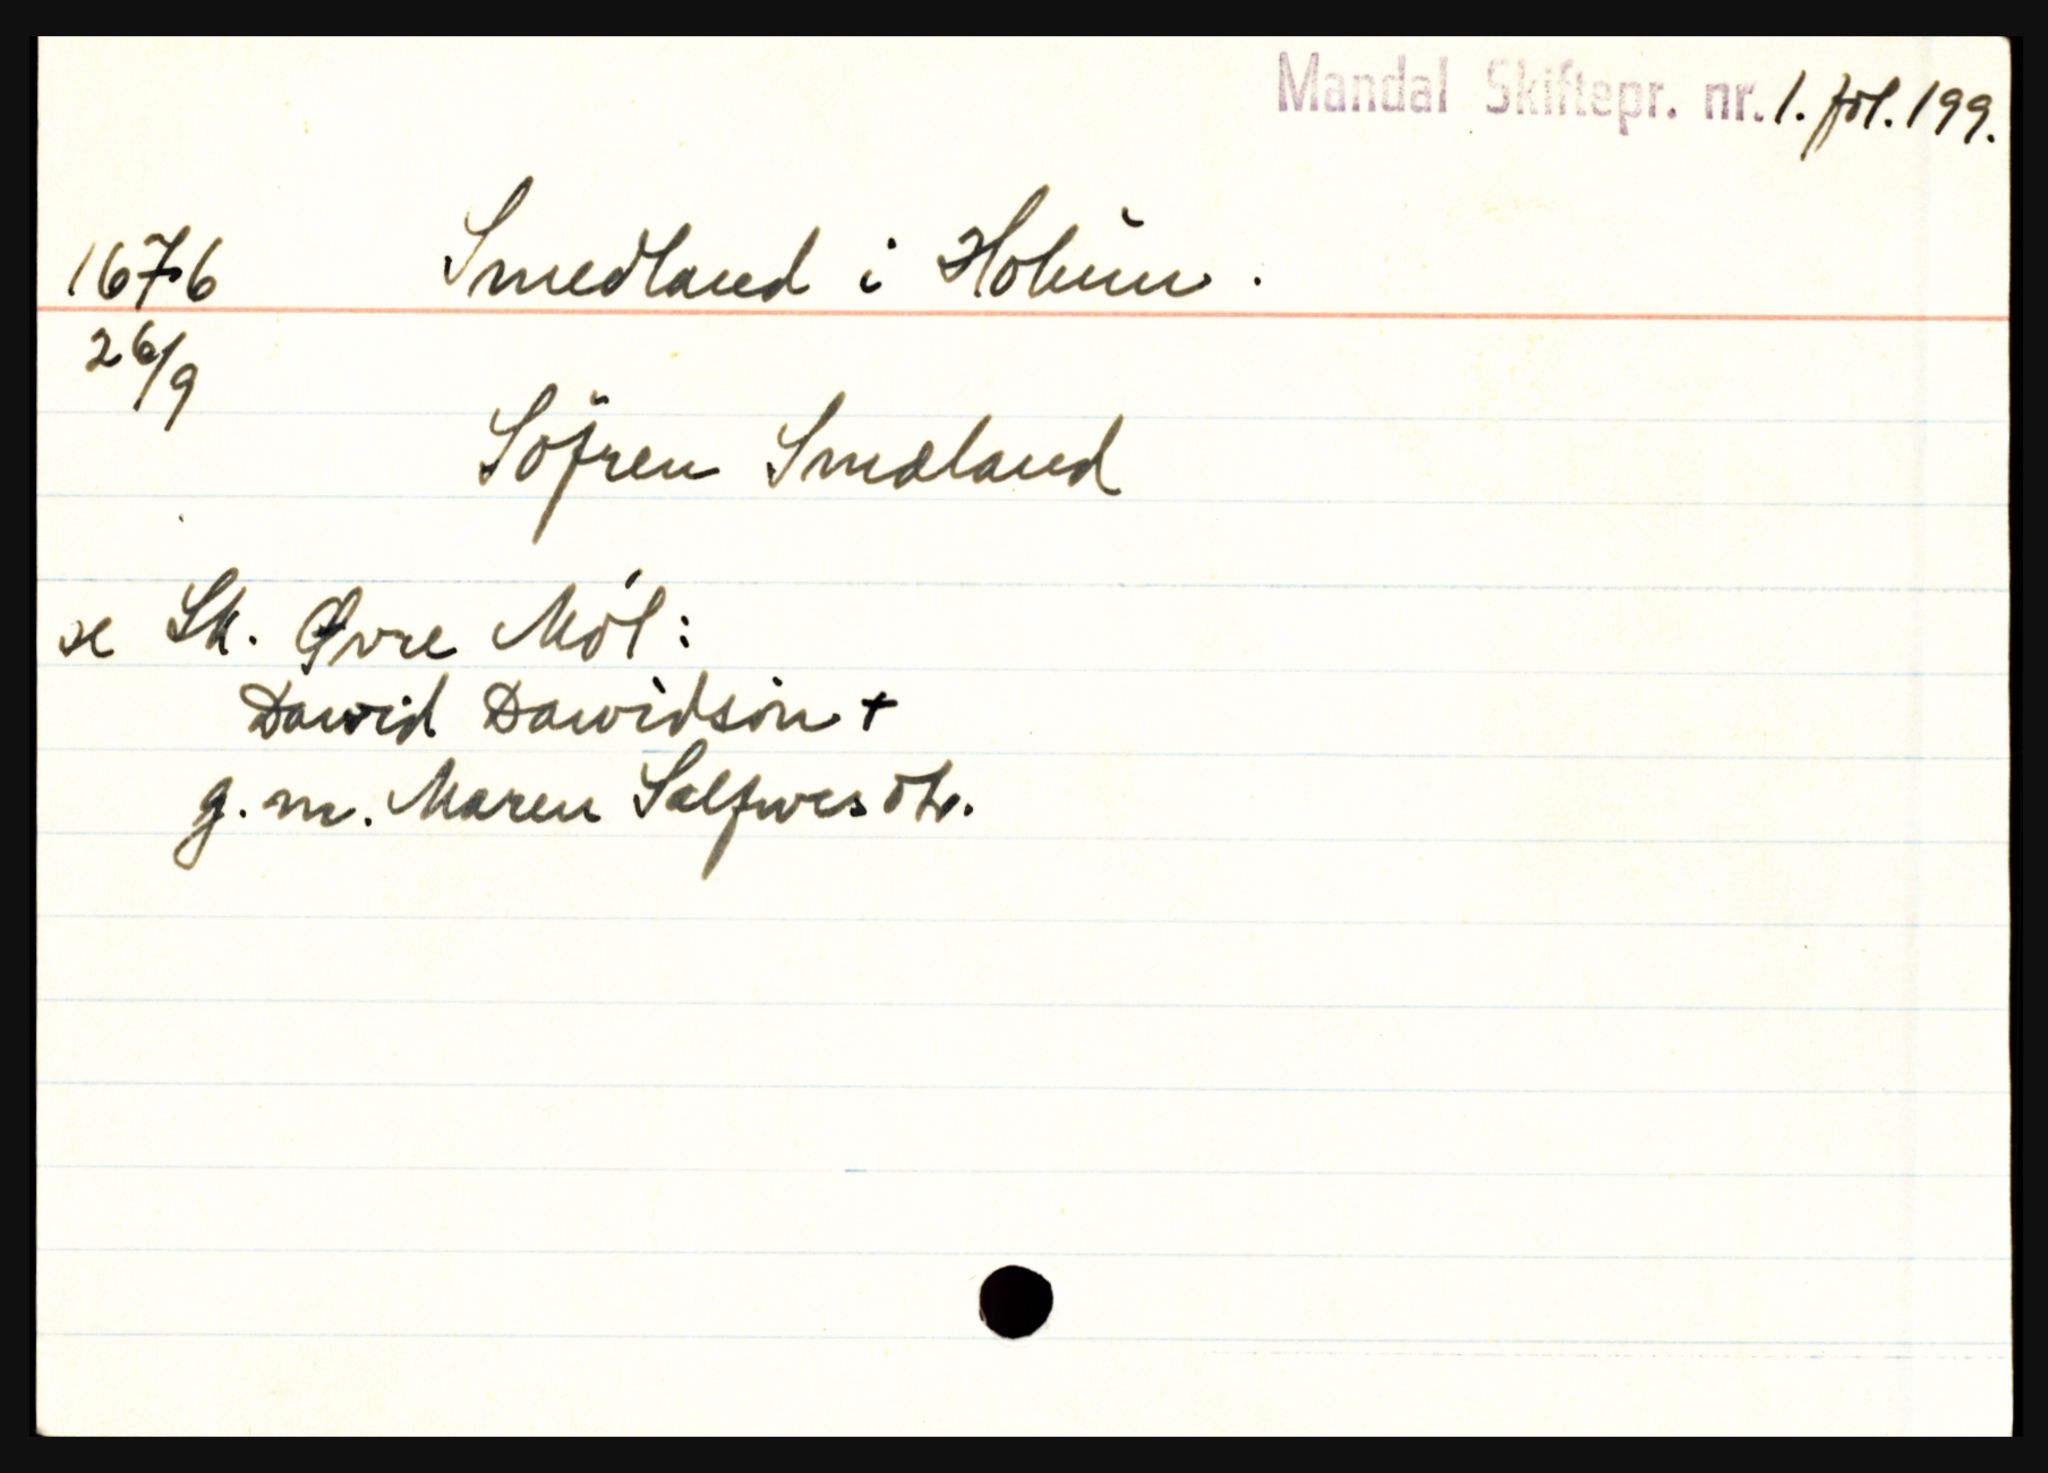 Mandal Skiftepr. nr. 1. fol. 199.
1676 Smedland i Holum.
26/9
Söfren Smaland
se Sk. Øvre Mól:
Dawid Dawidsön +
g. m. Maren Salfwesdtr.